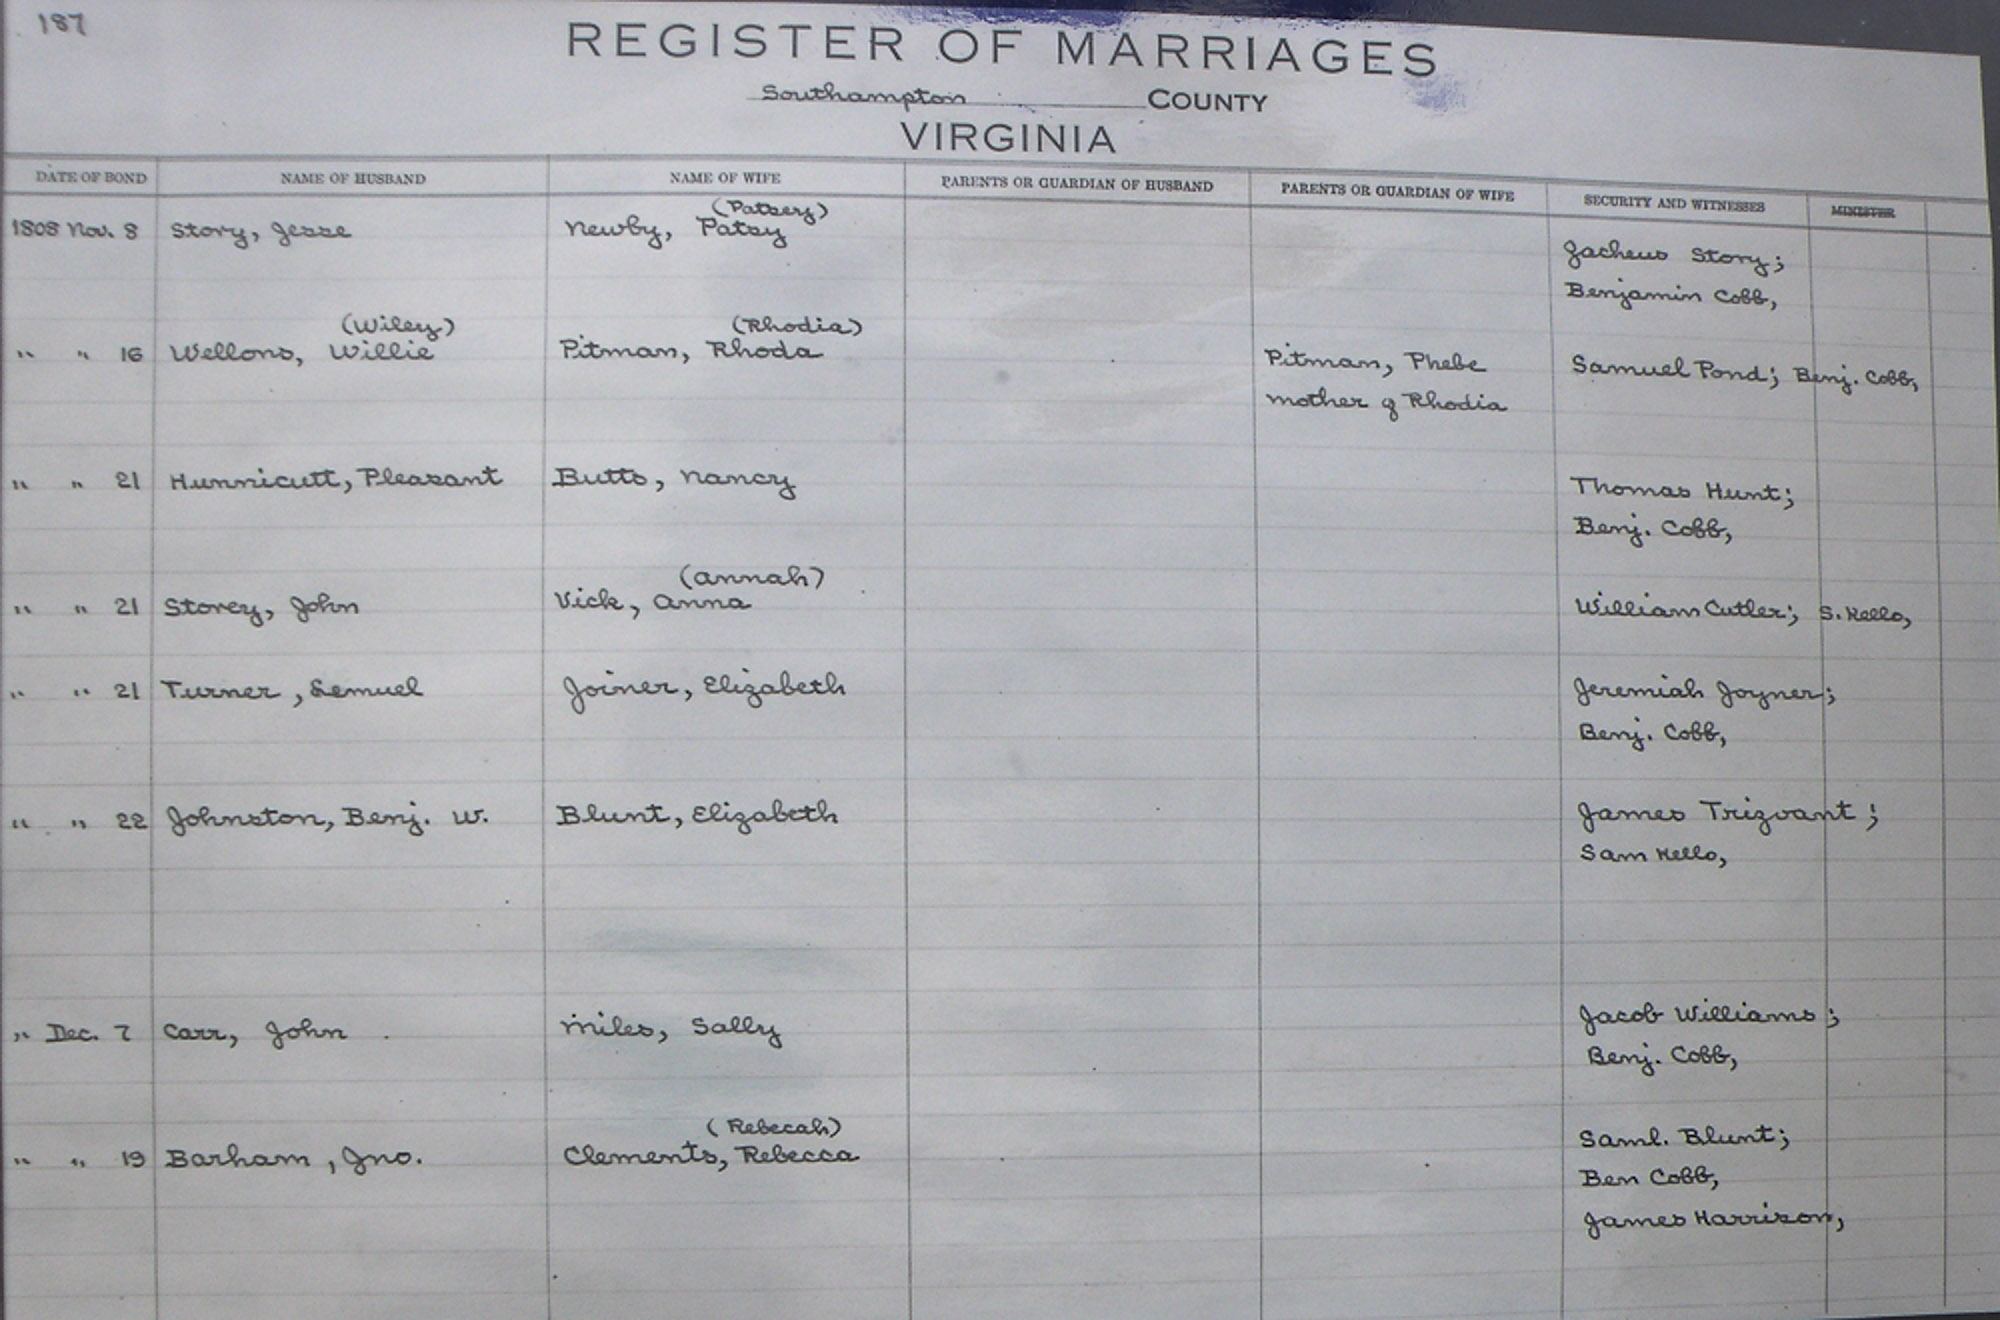 187
REGISTER OF MARRIAGES
Southampton COUNTY
VIRGINIA
DATE OF BOND NAME OF HUSBAND NAME OF WIFE PARENTS OR GUARDIAN OF HUSBAND PARENTS OR GUARDIAN OF WIFE SECURITY AND WITNESSES MINISTER
(Patsey)
1808 Nov. 8 Story, Jesse Newby, Patsy
Zacheus Story;
Benjamin Cobb,
(Wiley) (Rhodia)
" " 16 Wellons, Willie Pitman, Rhoda Pitman, Phebe Samuel Pond; Benj. Cobb,
mother of Rhodia
" " 21 Hunnicutt, Pleasant Butts, Nancy Thomas Hunt;
Benj. Cobb,
(Annah)
" " 21 Storey, John Vick, Anna William Cutler; S. Kello,
" " 21 Turner, Lemuel Joiner, Elizabeth Jeremiah Joyner;
Benj. Cobb,
" " 22 Johnston, Benj. W. Blunt, Elizabeth James Trizvant;
Sam Kello,
" Dec. 7 Carr, John Miles, Sally Jacob Williams;
Benj. Cobb,
(Rebecah)
" " 19 Barham, Jno. Clements, Rebecca Saml. Blunt;
Ben Cobb,
James Harrison,